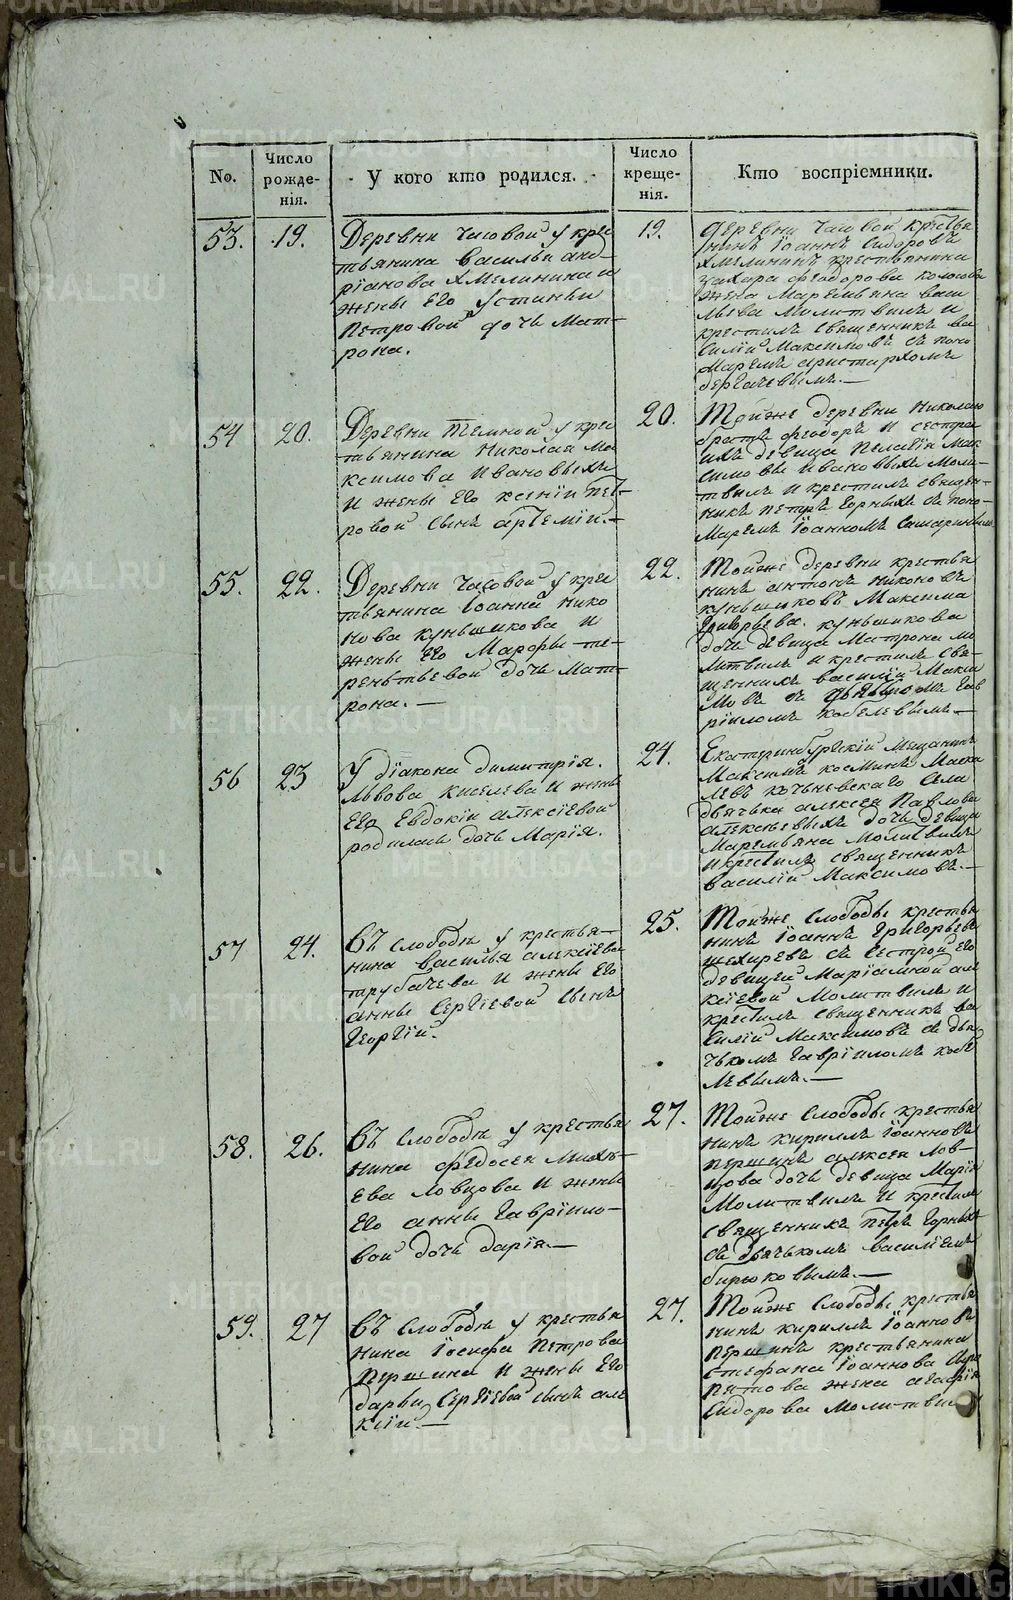 No.
Число рожде-нія.
У кого кто родился.
Число креще-нія.
Кто воспріемники.
53.
19.
Деревни Часовой у кре
стьянина Василья анд-
ріанова Хмелинина и
жены Его Устиньи
Петровой дочь Мат-
рона.
19.
деревни Часовой крестья
нинъ Іоаннъ Сидоровъ
Хмелининъ крестьянина
захара феодорова
жена Маремьяна васи
льева Молитвилъ и
крестилъ Священникъ ва
силій Максимовъ съ поно
маремъ аристархомъ
дергачевымъ.—
54
20.
Деревни Темной у крес
тьянина Николая Ма
ксимова Ивановыхъ
и жены Его ксеніи Пет-
ровой сынъ артемій.—
20.
Тойже деревни Николаю
братъ феодоръ и сестра
ихъ девица Пелагія Мак
симовы Ивановыхъ Моли-
твилъ и крестилъ священ-
никъ Петръ Горныхъ съ поно-
маремъ Іоанномъ
55.
22.
Деревни Часовой у кре
стьянина Іоанна Нико
нова куньшикова и
жены Его Марфы те-
рентьевой дочь Мат-
рона.—
22.
Тойже деревни крестья
нинъ антонъ Никоновъ
куньшиковъ Максима
Григорьева куньшикова
дочь девица Матрона мо
литвилъ и крестилъ свя-
щенникъ василій Макси
мовъ съ дьячкомъ Гав
ріиломъ кобелевымъ.—
56
23
У діакона димитрія.
Львова киселева и жены
Его Евдокіи алексіевой
родилась дочь Марія.
24.
Екатеринбургскій мещанинъ
Максимъ косминъ
кочьневскаго села
дьячька алексея Павлова
алексеевыхъ дочь девица
Маремьяна Молитвилъ
и крестилъ священникъ
василій Максимовъ.—
57
24.
Въ слободе у крестья-
нина василья алексіева
трубачева и жены Его
анны Сергіевой сынъ
Георгій.
25.
Тойже слободы крестья
нинъ Іоаннъ Григорьевъ
съ сестрой Его
девицей Маріамной ал
ксіевой Молитвилъ и
крестилъ священникъ ва
силій Максимовъ съ дья
чькомъ Гавріиломъ кобе
левымъ.—
58.
26.
Въ слободе у крестья
нина федосея Михе-
ева ловцова и жены
Его анны Гавріило-
вой дочь дарія.—
27.
Тойже слободы крестья
нинъ кириллъ Іоанновъ
першинъ алексея лов-
цова дочь девица Марія
Молитвилъ и крестилъ
священникъ Петръ Горныхъ
съ дьячькомъ василіемъ
бирюковымъ.—
59.
27
Въ слободе у крестья
нина Іосифа Петрова
Першина и жены Его
дарьи Сергіевой сынъ але
ксій.—
27.
Тойже слободы крестья
нинъ кириллъ Іоанновъ
Першинъ крестьянина
стефана Іоаннова
жена агафія
Сидорова Молитвилъ
METRIKI.GASO-URAL.RU